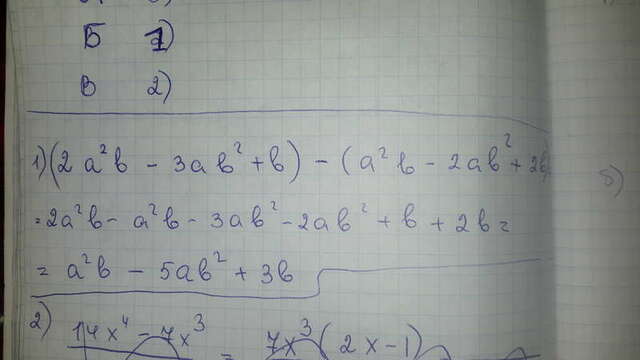 Б 1)
В 2)
1) (2a²b - 3ab² + b) - (a²b - 2ab² + 2b)
= 2a²b - a²b - 3ab² - 2ab² + b + 2b =
= a²b - 5ab² + 3b
2) 14x⁴ - 7x³ = 7x³(2x-1)
б)